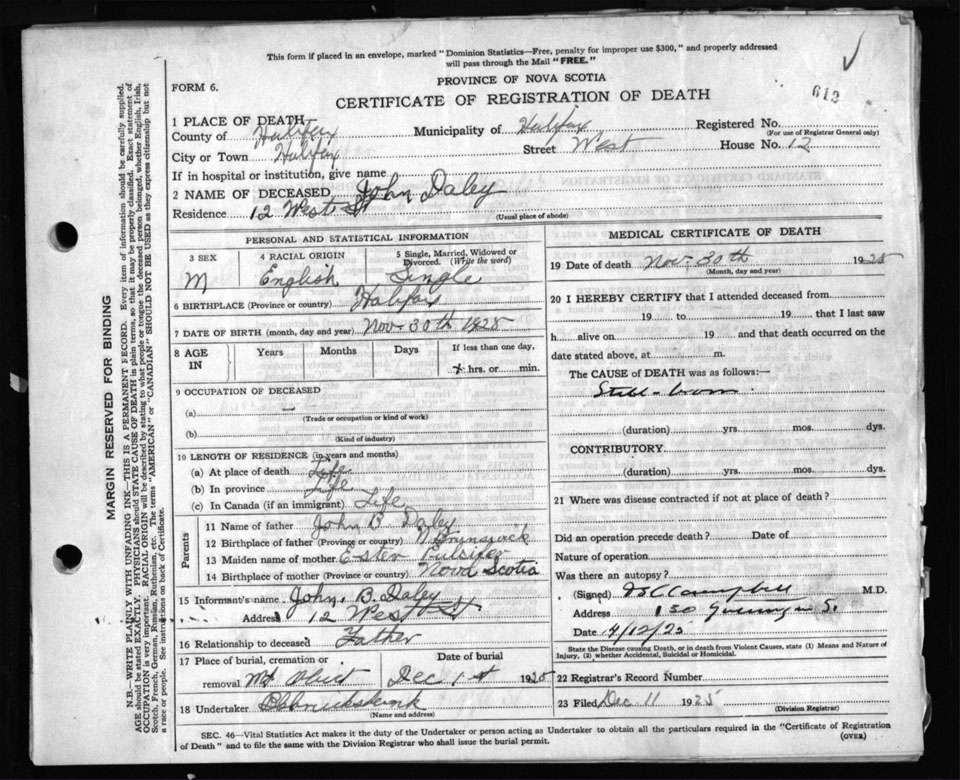 This form if placed in an envelope, marked "Dominion Statistics—Free, penalty for improper use $300," and properly addressed
will pass through the Mail "FREE."
PROVINCE OF NOVA SCOTIA
FORM 6.
CERTIFICATE OF REGISTRATION OF DEATH
612
1 PLACE OF DEATH
County of Halifax Municipality of Halifax Registered No.
(For use of Registrar General only)
City or Town Halifax Street West House No. 12
If in hospital or institution, give name
2 NAME OF DECEASED John Daley
Residence 12 West St
(Usual place of abode)
PERSONAL AND STATISTICAL INFORMATION
3 SEX 4 RACIAL ORIGIN 5 Single, Married, Widowed or
Divorced. (Write the word)
M English Single
6 BIRTHPLACE (Province or country) Halifax
7 DATE OF BIRTH (month, day and year) Nov 30th
8 AGE IN Years Months Days If less than one day,
hrs. or min.
9 OCCUPATION OF DECEASED
(a) —
(Trade or occupation or kind of work)
(b)
(Kind of industry)
10 LENGTH OF RESIDENCE (in years and months)
(a) At place of death Life
(b) In province Life
(c) In Canada (if an immigrant) Life
Parents
11 Name of father John B. Daley
12 Birthplace of father (Province or country) N Brunswick
13 Maiden name of mother Ester
14 Birthplace of mother (Province or country) Nova Scotia
15 Informant's name John. B. Daley
Address 12 West St
16 Relationship to deceased Father
17 Place of burial, cremation or Date of burial
removal Mt Olivet Dec 1st 1925
18 Undertaker
(Name and address)
MEDICAL CERTIFICATE OF DEATH
19 Date of death Nov 30th 1925
(Month, day and year)
20 I HEREBY CERTIFY that I attended deceased from
19 to 19 that I last saw
h alive on 19 and that death occurred on the
date stated above, at m.
The CAUSE of DEATH was as follows:—
Still-born
(duration) yrs. mos. dys.
CONTRIBUTORY
(duration) yrs. mos. dys.
21 Where was disease contracted if not at place of death?
Did an operation precede death? Date of
Nature of operation
Was there an autopsy?
(Signed) Campbell M.D.
Address 130
Date 4/12/25
State the Disease causing Death, or in death from Violent Causes, state (1) Means and Nature of
Injury, (2) whether Accidental, Suicidal or Homicidal.
22 Registrar's Record Number
23 Filed Dec 11 1925
(Division Registrar)
SEC. 46—Vital Statistics Act makes it the duty of the Undertaker or person acting as Undertaker to obtain all the particulars required in the "Certificate of Registration
of Death" and to file the same with the Division Registrar who shall issue the burial permit.
(OVER)
MARGIN RESERVED FOR BINDING
N.B.—WRITE PLAINLY WITH UNFADING INK—THIS IS A PERMANENT RECORD. Every item of information should be carefully supplied.
AGE should be stated EXACTLY. PHYSICIANS should STATE CAUSE OF DEATH in plain terms, so that it may be properly classified. Exact statement of
OCCUPATION is very important. RACIAL ORIGIN will be described by stating to what people or tongue the deceased person belonged, whether English, Irish,
Scotch, French, German, Russian, Ruthenian, etc. The terms "AMERICAN" or "CANADIAN" SHOULD NOT BE USED as they express citizenship but not
a race or people. See instructions on back of Certificate.